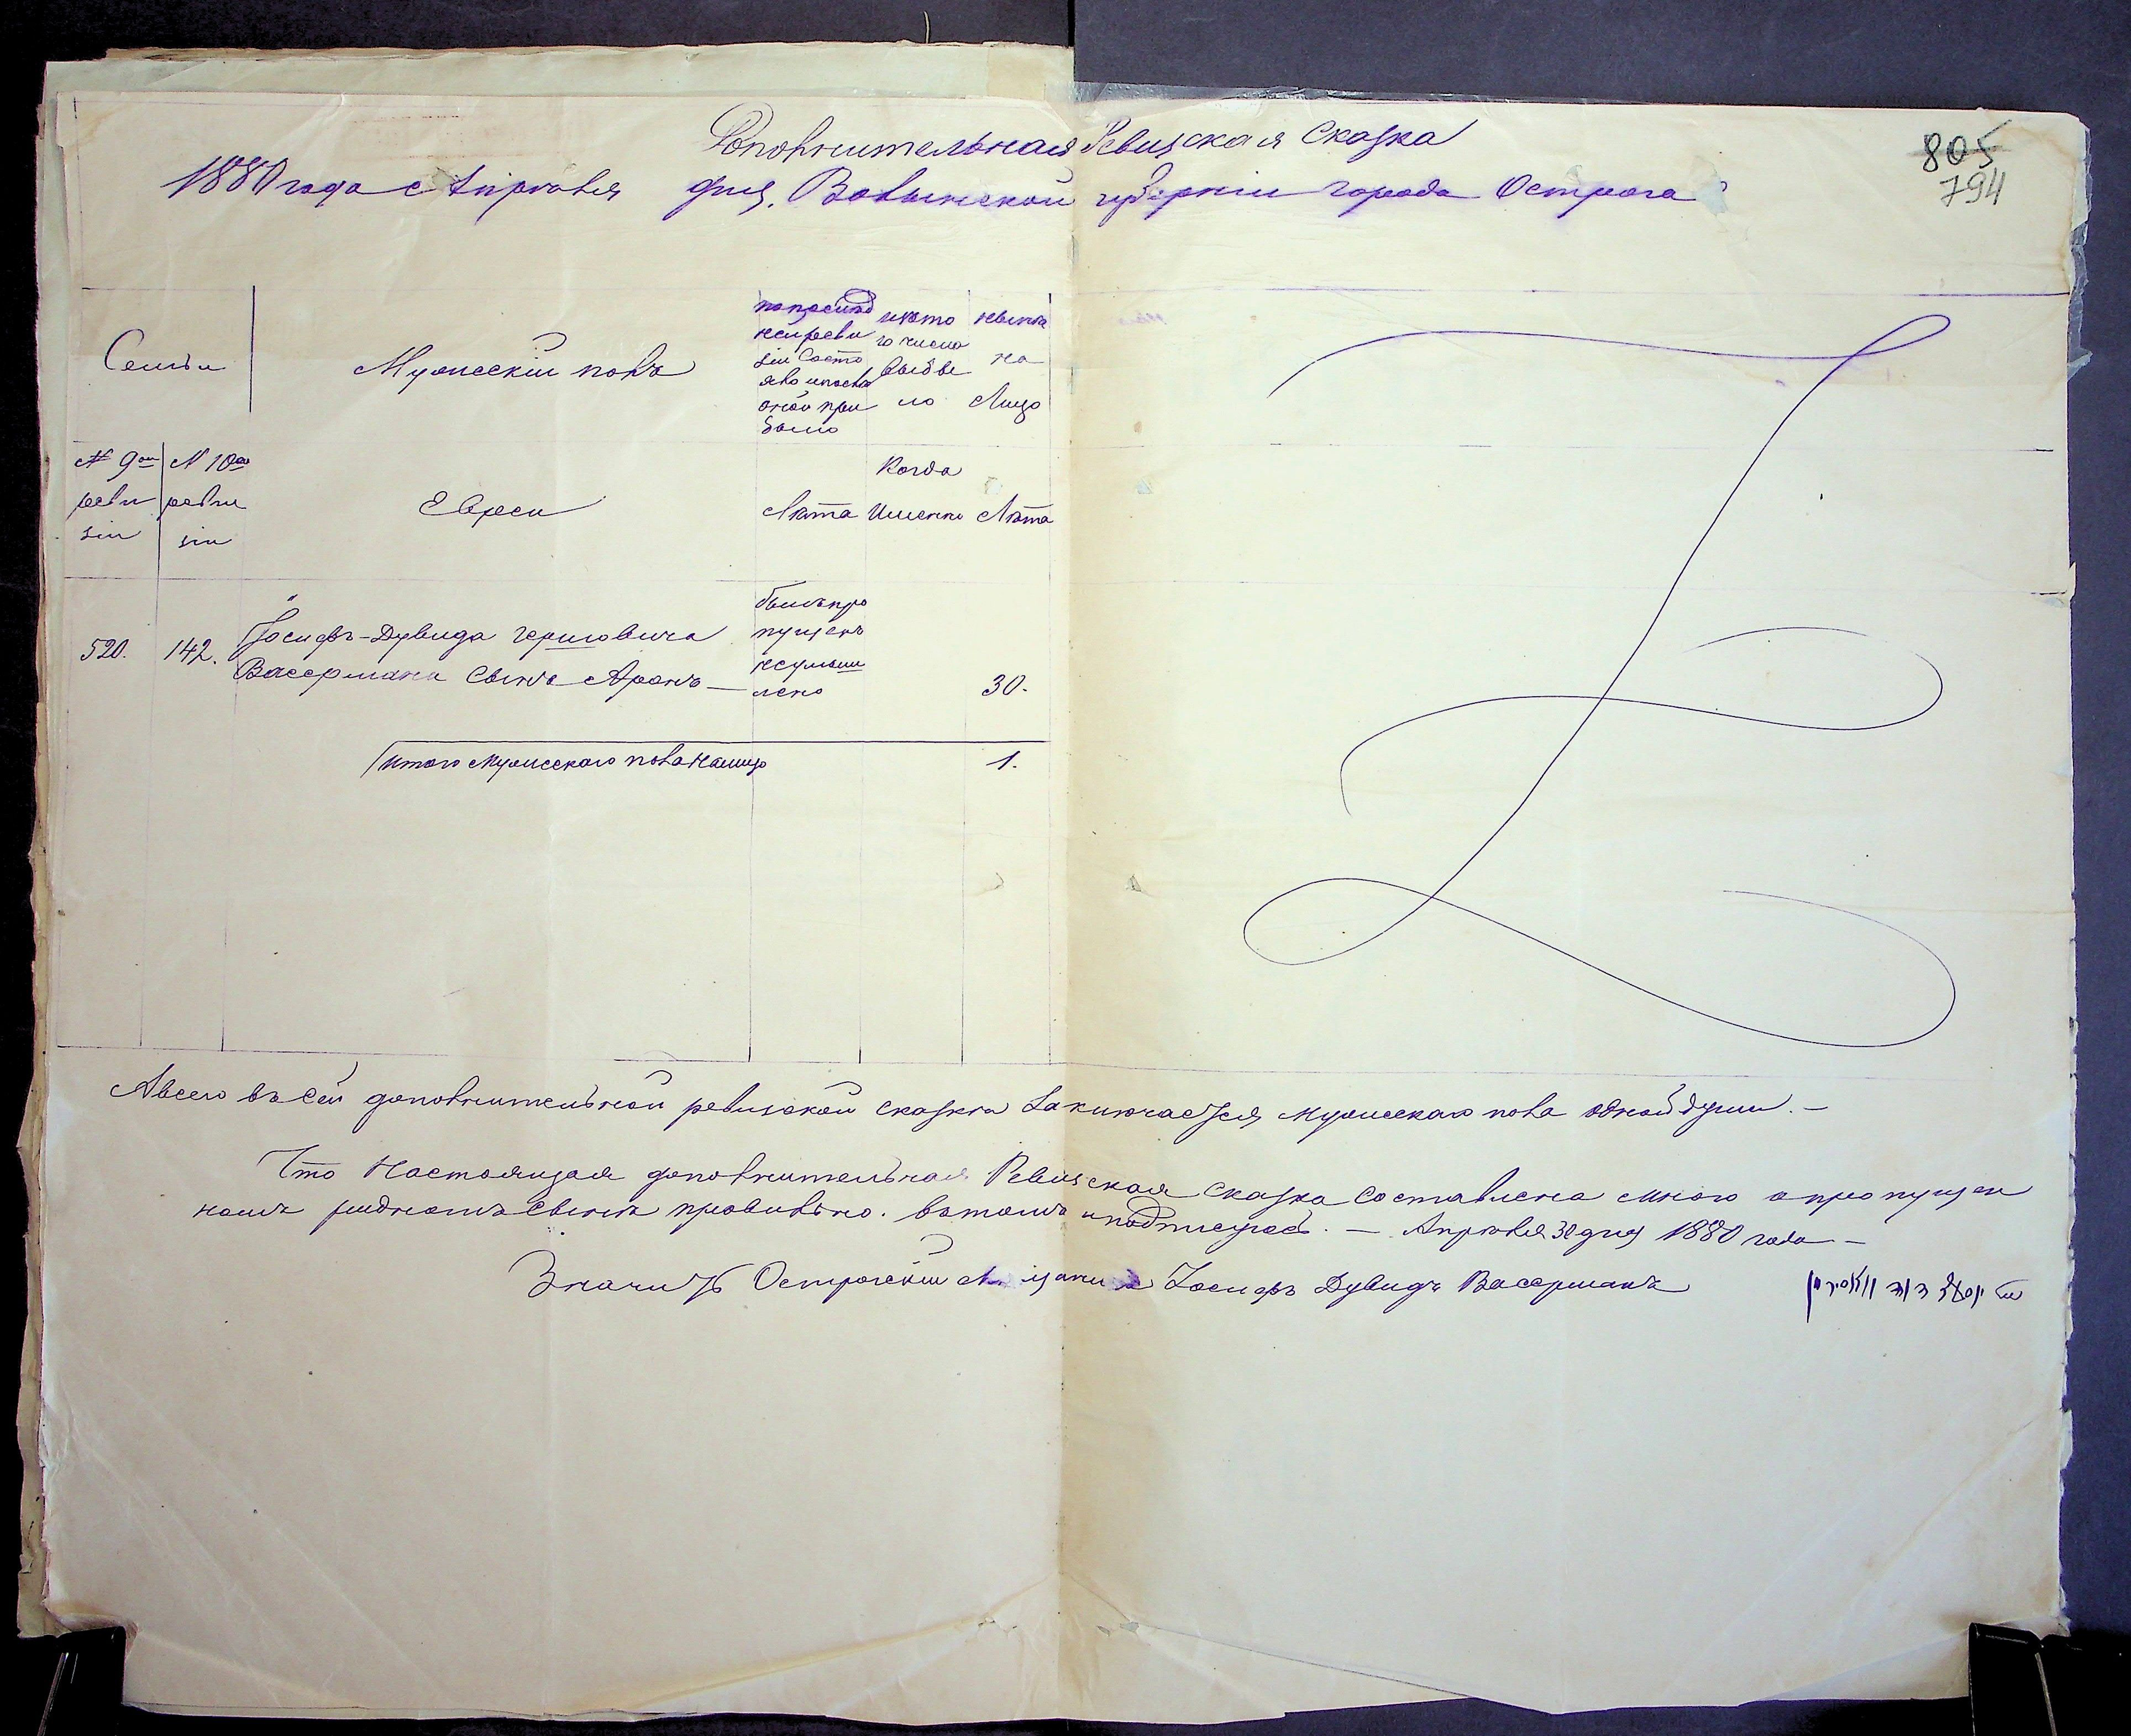 805
794
Дополнительная Ревизская Сказка
1880 года Апрѣля дня. Волынской губернiи города Острога
Семьи
Мужескiй полъ
по послѣд
ней реви
зiи состо
яло и послѣ
оной при
было
изъ то
го числа
выбы
ло
нынѣ
на
лицо
№ 9ой
реви
зiи
№ 10ой
реви
зiи
Евреи
Лѣта
Когда
именно
Лѣта
520.
142.
Iосифъ-Дувида Гершовича
Вассермана сынъ Аронъ —
былъ про
пущенъ
неумыш
лено
30.
Итого Мужескаго пола на лицо
1.
А всего въ сей дополнительной ревизской сказкѣ заключается мужескаго пола одной души. —
Что настоящая дополнительная Ревизская сказка составлена мною о пропущен
номъ родномъ сынѣ правильно. въ томъ и подписуюсь. — Апрѣля 30 дня 1880 года —
Значитъ Острожскiй мѣщанинъ Iосифъ Дувидъ Вассерманъ
יוסף דוד וואסרמן